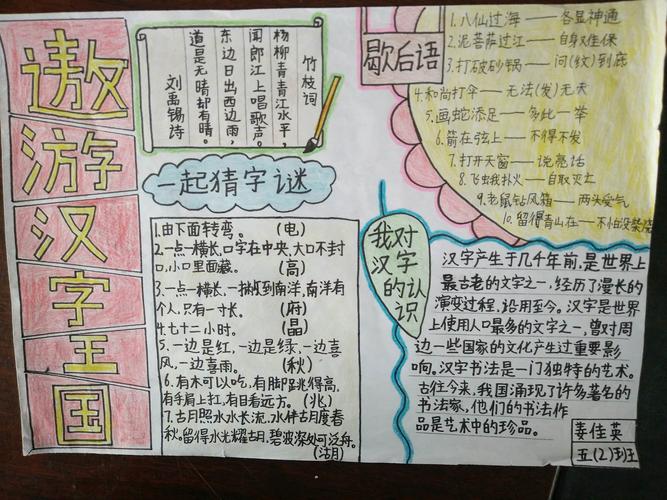 遨游汉字王国
竹枝词
杨柳青青江水平，
闻郎江上唱歌声。
东边日出西边雨，
道是无晴却有晴。
刘禹锡诗
歇后语
1.八仙过海——各显神通
2.泥菩萨过江——自身难保
3.打破砂锅——问(纹)到底
4.和尚打伞——无法(发)无天
5.画蛇添足——多此一举
6.箭在弦上——不得不发
7.打开天窗——说亮话
8.飞蛾扑火——自取灭亡
9.老鼠钻风箱——两头受气
10.留得青山在——不怕没柴烧
一起猜字谜
1.由下面转弯。(电)
2.一点一横长，口字在中央，大口不封
口，小口里面藏。(高)
3.一点一横长，一撇撇到南洋，南洋有
个人，只有一寸长。(府)
4.七十二小时。(晶)
5.一边是红，一边是绿，一边喜
风，一边喜雨。(秋)
6.有木可以吃，有脚跳得高，
有手肩上扛，有目看远方。(兆)
7.古月照水水长流，水伴古月度春
秋。留得水光耀古月，碧波深处可泛舟。
(湖)
我对汉字的认识
汉字产生于几千年前，是世界上
最古老的文字之一，经历了漫长的
演变过程，沿用至今。汉字是世界
上使用人口最多的文字之一，曾对周
边一些国家的文化产生过重要影
响。汉字书法是一门独特的艺术。
古往今来，我国涌现了许多著名的
书法家，他们的书法作
品是艺术中的珍品。
姜佳英
五(2)班